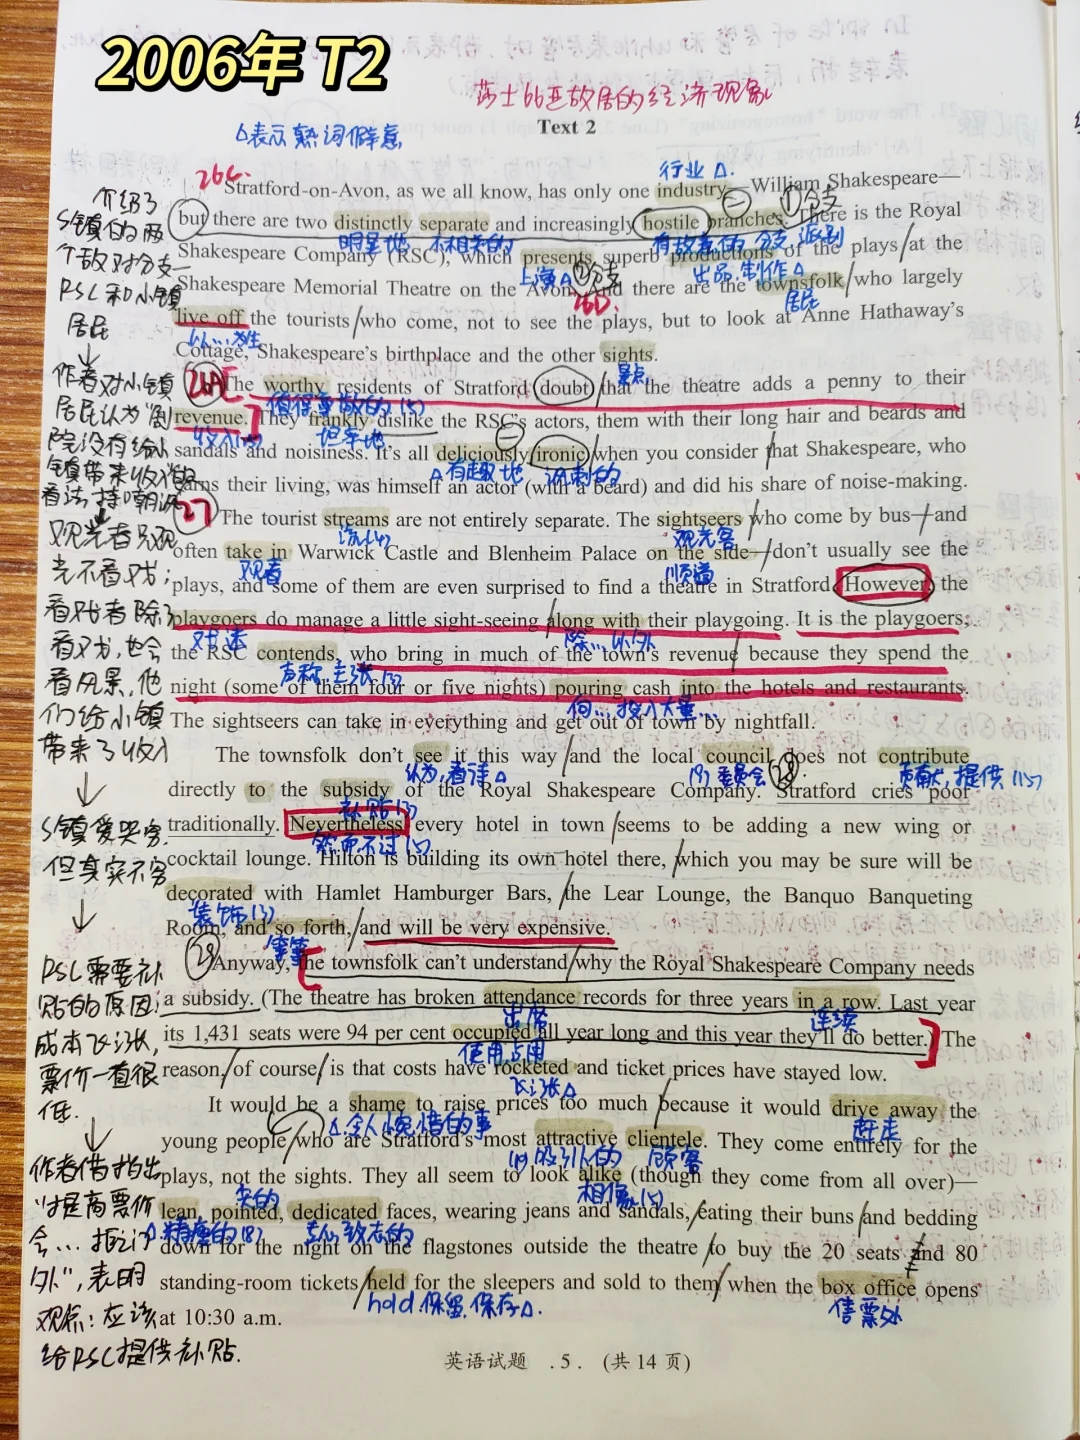 2006年 T2
莎士比亚故居的经济现象
Text 2
△表示熟词僻意
26C.
行业△.
Stratford-on-Avon, as we all know, has only one industry—William Shakespeare—
but there are two distinctly separate and increasingly hostile branches. There is the Royal
①分支
明显地 不相关的
有敌意的 分支 派别
Shakespeare Company (RSC), which presents superb productions of the plays at the
上演△ ②分支
出品,制作△
Shakespeare Memorial Theatre on the Avon. And there are the townsfolk who largely
26D.
居民
live off the tourists who come, not to see the plays, but to look at Anne Hathaway's
以...为生
Cottage, Shakespeare's birthplace and the other sights.
景点
26A
The worthy residents of Stratford doubt that the theatre adds a penny to their
值得尊敬的(5)
revenue. They frankly dislike the RSC's actors, them with their long hair and beards and
收入(15)
坦率地
sandals and noisiness. It's all deliciously ironic when you consider that Shakespeare, who
△有趣地 讽刺的
earns their living, was himself an actor (with a beard) and did his share of noise-making.
27
The tourist streams are not entirely separate. The sightseers who come by bus—and
流(4)
观光客
often take in Warwick Castle and Blenheim Palace on the side—don't usually see the
观看
顺道
plays, and some of them are even surprised to find a theatre in Stratford. However, the
playgoers do manage a little sight-seeing along with their playgoing. It is the playgoers,
戏迷
除...以外
the RSC contends, who bring in much of the town's revenue because they spend the
声称,主张(3)
night (some of them four or five nights) pouring cash into the hotels and restaurants.
向...投入大量...
The sightseers can take in everything and get out of town by nightfall.
The townsfolk don't see it this way and the local council does not contribute
认为,看待△
(9)委员会
28
贡献,提供(15)
directly to the subsidy of the Royal Shakespeare Company. Stratford cries poor
补贴(3)
traditionally. Nevertheless every hotel in town seems to be adding a new wing or
然而不过(5)
cocktail lounge. Hilton is building its own hotel there, which you may be sure will be
decorated with Hamlet Hamburger Bars, the Lear Lounge, the Banquo Banqueting
装饰(3)
Room, and so forth, and will be very expensive.
等等
29
Anyway, the townsfolk can't understand why the Royal Shakespeare Company needs
a subsidy. (The theatre has broken attendance records for three years in a row. Last year
出席
连续
its 1,431 seats were 94 per cent occupied all year long and this year they'll do better.) The
使用,占用
reason, of course, is that costs have rocketed and ticket prices have stayed low.
飞涨△
It would be a shame to raise prices too much because it would drive away the
△.令人惋惜的事
赶走
young people who are Stratford's most attractive clientele. They come entirely for the
吸引人的 顾客
plays, not the sights. They all seem to look alike (though they come from all over)—
相像(5)
lean, pointed, dedicated faces, wearing jeans and sandals, eating their buns and bedding
尖的
△精瘦的(8)
down for the night on the flagstones outside the theatre to buy the 20 seats and 80
standing-room tickets held for the sleepers and sold to them when the box office opens
hold 保留,保存△.
售票处
at 10:30 a.m.
介绍了
S镇的两
个敌对分支—
RSC和小镇
居民
↓
作者对小镇
居民认为"剧
院没有给小
镇带来收入"的
看法持嘲讽
↓
观光者只观
光不看戏;
看戏者除了
看戏,也会
看风景,他
们给小镇
带来了收入
↓
S镇爱哭穷
但其实不穷
↓
RSC需要补
贴的原因:
成本飞涨,
票价一直很
低.
↓
作者借指出
"提高票价
会...拒之门
外",表明
观点:应该
给RSC提供补贴.
英语试题 . 5 . (共 14 页)